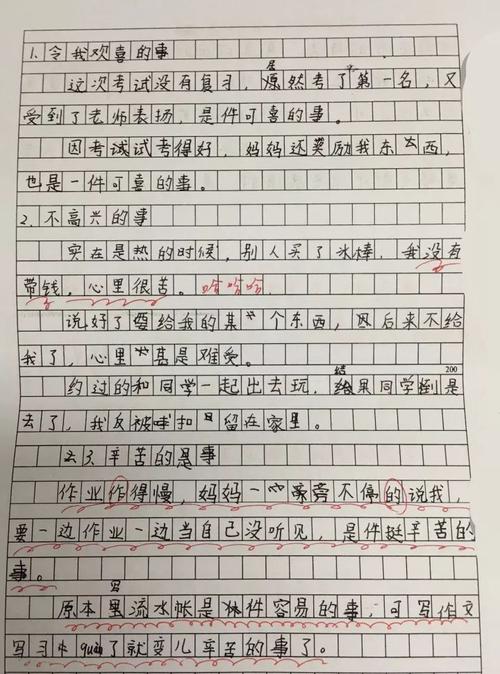 1.令我欢喜的事
这次考试没有复习，居然考了第一名，又
受到了老师表扬，是件可喜的事。
因考试试考得好，妈妈还奖励我东西，
也是一件可喜的事。
2.不高兴的事
实在是热的时候，别人买了冰棒，我没有
带钱，心里很苦。哈哈哈
说好了要给我的某个东西，因后来不给
我了，心里甚是难受。
约过的和同学一起出去玩，结果同学倒是
去了，我反被留在家里。
辛苦的是事
200
作业作得慢，妈妈一旁不停的说我，
要一边作业一边当自己没听见，是件挺辛苦的
事。
原本写流水帐是件容易的事，可写作文
写习quan了就变儿辛苦的事了。